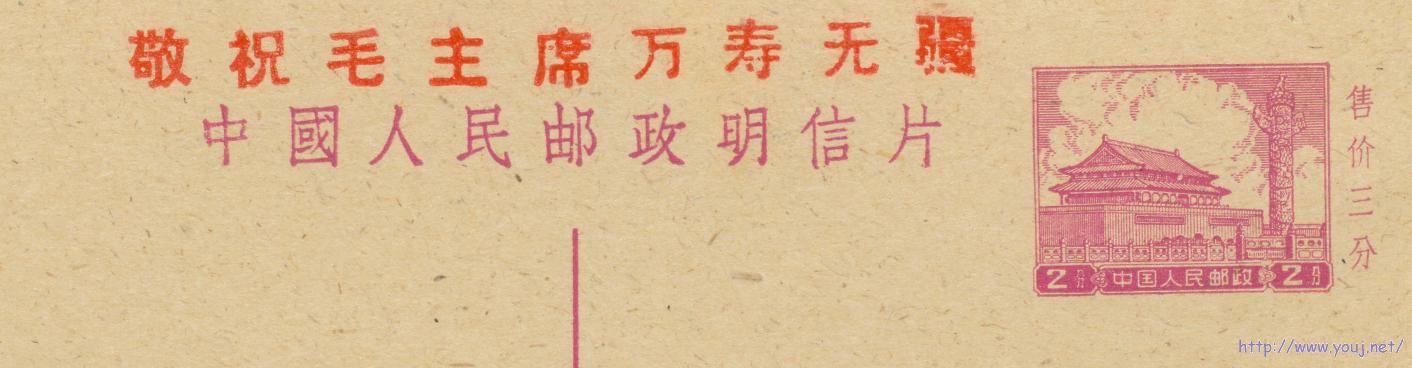 敬祝毛主席万寿无疆
中國人民邮政明信片
售价三分
2分 中国人民邮政 2分
http://www.youj.net/